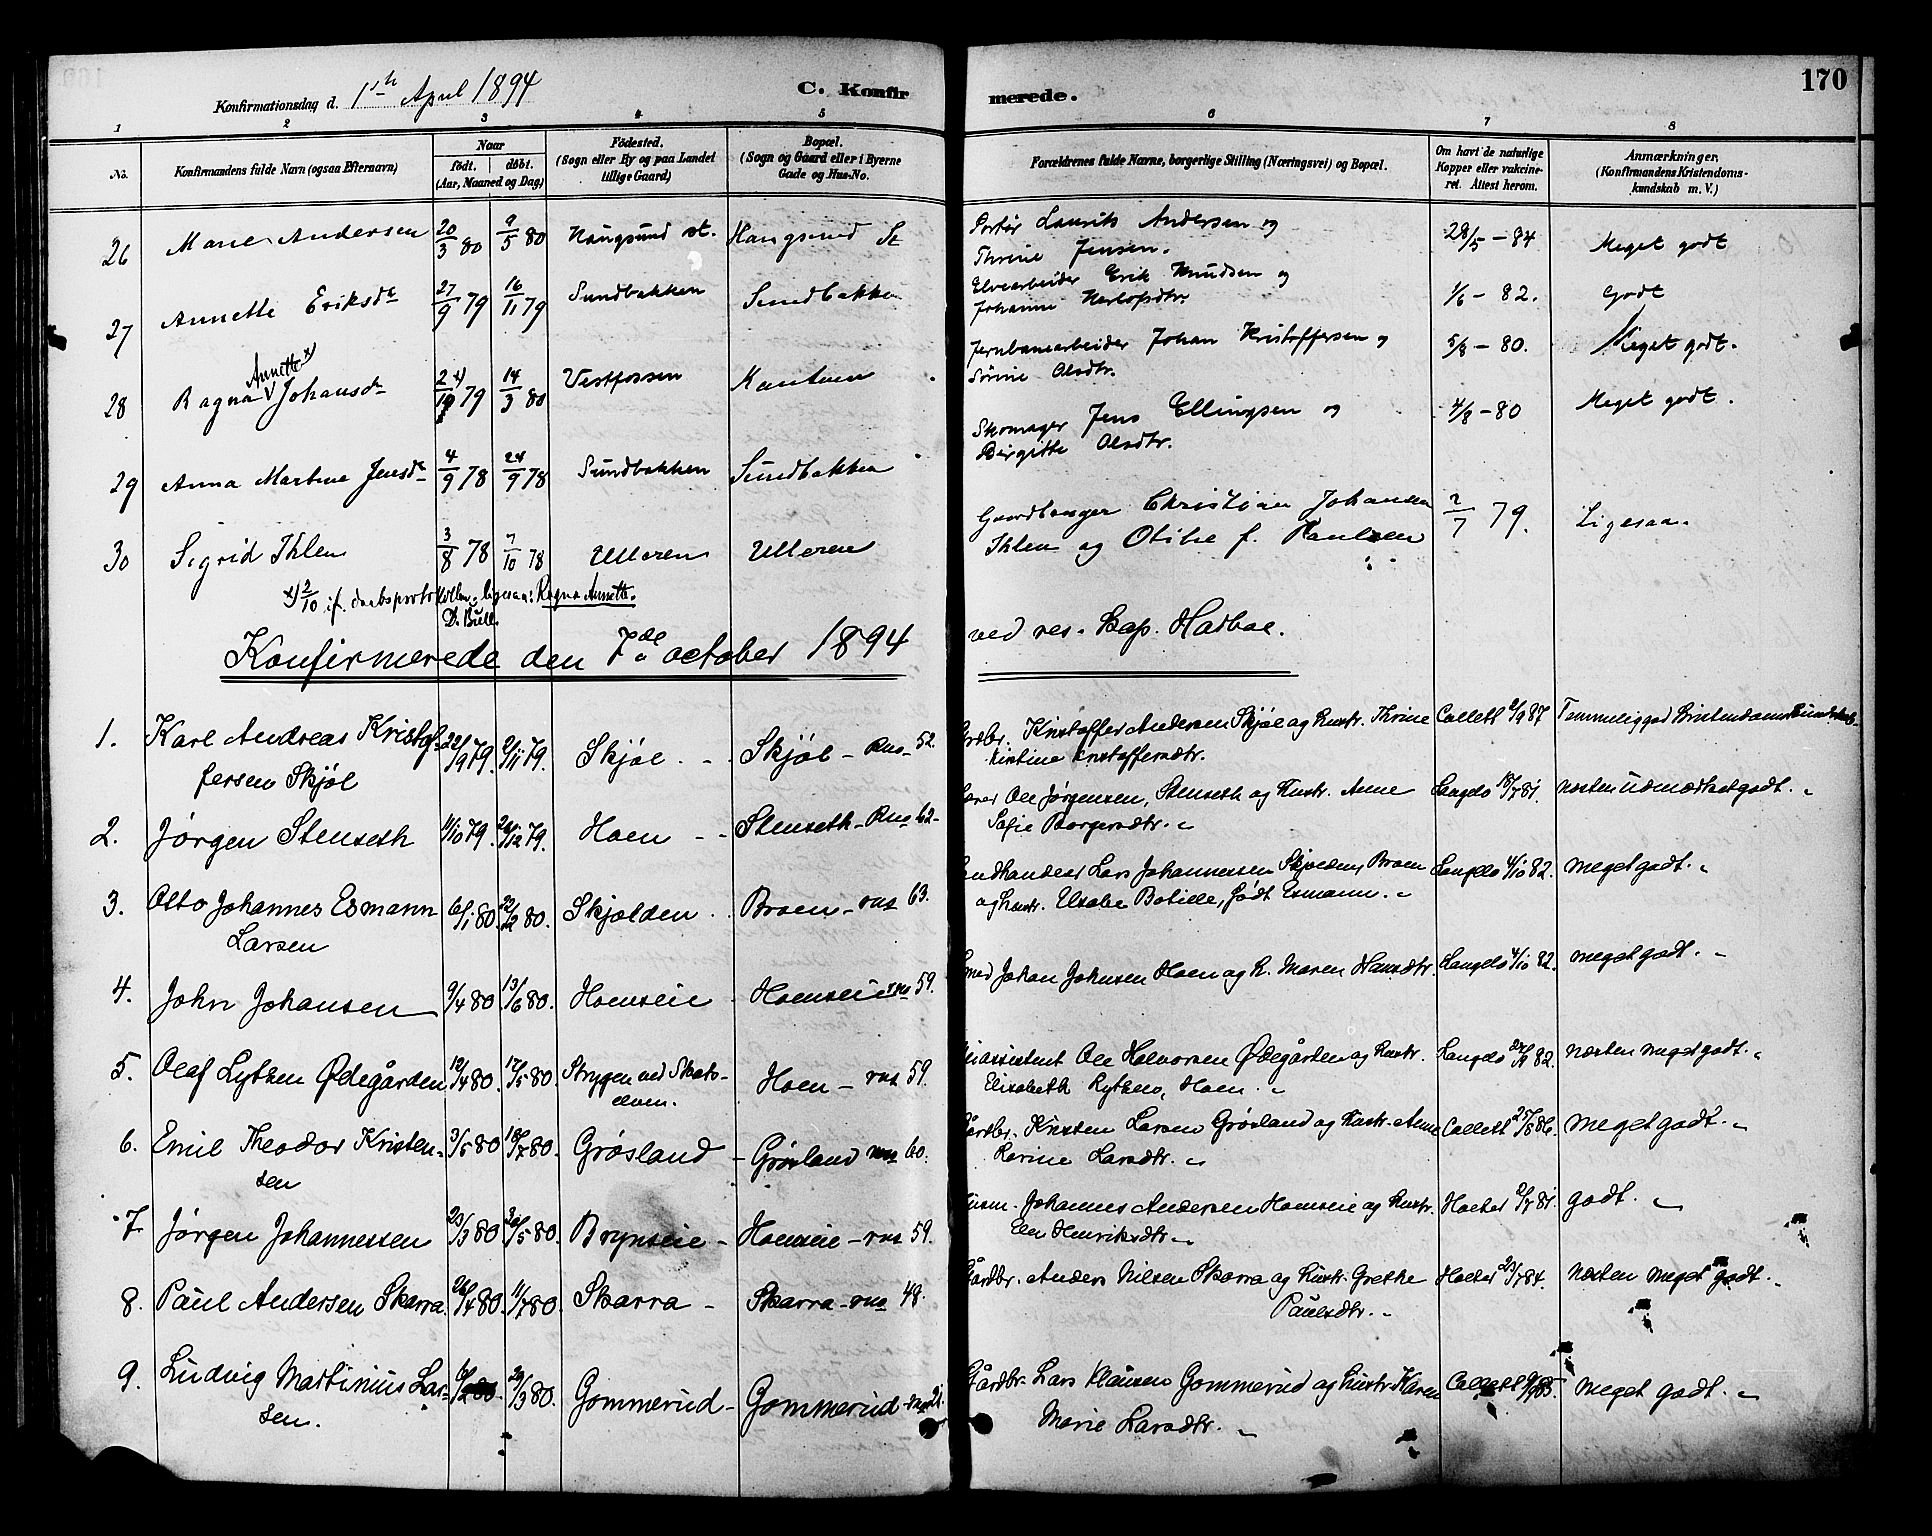 170
Konfirmationsdag d. 1ste April 1894
C. Konfirmerede.
1 2 3 4 5 6 7 8
No. Konfirmandens fulde Navn (ogsaa Efternavn) Naar født. døbt. (Aar, Maaned og Dag) Fødested. (Sogn eller By og paa Landet tillige Gaard) Bopæl. (Sogn og Gaard eller i Byerne Gade og Hus-No. Forældrenes fulde Navne, borgerlige Stilling (Næringsvei) og Bopæl. Om havt de naturlige Kopper eller vakcineret. Attest herom. Anmærkninger. (Konfirmandens Kristendomskundskab m. V.)
26 Marie Andersen 20/3 80 9/5 80 Haugsund st. Haugsund St Portør Laurits Andersen og
Thrine Jensen. 28/5 - 84 Meget godt
27 Annette Eriksdt 27/9 79 16/11 79 Sundbakken Sundbakken Elvearbeider Erik Knudsen og
Johanne 1/6 - 82. Godt
28 Ragna Annette x) Johansdt 2/10 x) 79 14/3 80 Vestfossen Jernbanearbeider Johan Kristoffersen og
Sørine Olsdtr. 5/8 - 80. Meget godt.
29 Anna Martine Jensdt 4/9 78 24/9 78 Sundbakken Sundbakken Skomager Jens Ellingsen og
Birgitte Olsdtr. 4/8 - 80 Meget godt.
30 Sigrid Ihlen 3/8 78 7/10 78 Ulleren Ulleren Gaardbruger Christian Johansen
Ihlen og Otilie f. Paulsen 2/7 79. Ligesaa.
x) 2/10 if. daabsprotokollen. Ligesaa: Ragna Annette.
D. Bull.
Konfirmerede den 7de october 1894 ved res. Kap. Hadboe.
1. Karl Andreas Kristof-
fersen Skjøl 22/9 79. 2/11 79. Skjøl - Skjøl - Rns 52. Grdbr. Kristoffer Andersen Skjøl og Hustr. Thrine
Kristine Kristoffersdtr. Collett 2/9 87 Temmelig god Kristendomskundskab
2. Jørgen Stenseth 11/10 79. 26/12 79. Hoen - Stenseth - Rns 62 - Ole Jørgensen, Stenseth og Hustr. Anne
Sofie Borgersdtr. " Langslo 18/7 81. næsten udmærket godt. "
3. Otto Johannes Esmann
Larsen 6/1 80. 22/2 80. Skjølden Broen - rns 63. Landhandler Lars Johannessen Skjolden, Broen
og hustr. Botille, født Esmann. " Langslo 4/10 82. meget godt. "
4. John Johansen 9/4 80 13/6 80. Hoenseie Hoenseie rns 59. Smed Johan Johnsen Hoen og H. Maren Hansdtr. Langslo 4/10 82. meget godt. "
5. Olaf Lytken Ødegården 12/4 80. 17/5 80. Strygen ved Skots-
elven. Hoen - rns 59. Veiassistent Ole Halvorsen Ødegården og Hustr.
Elisabeth Lytken, Hoen. " Langslo 82. næsten meget godt. "
6. Emil Theodor Kristen-
sen 3/5 80 18/7 80. Grøsland - Grøsland rns 60. Gårdbr. Kristen Larsen Grøsland og Hustr. Anne
Karine Larsdtr. " Collett 25/8 86. meget godt. "
7. Jørgen Johannessen 23/3 80 30/5 80. Brynseie - Hoenseie - rns 59. Husm. Johannes Andersen Hoenseie og Hustr.
Elen Henriksdtr. " Hoelet 2/7 81. godt. "
8. Paul Andersen Skarra 26/4 80. 11/7 80. Skarra - Skarra - rns 48. Gårdbr. Anders Nilsen Skarra og Hustr. Grethe
Paulsdtr. " Hoelet 23/7 84. næsten meget godt. "
9. Ludvig Martinius Lar-
sen. 6/2 80. 29/3 80. Gommerud - Gommerud - rns 21. Gårdbr. Lars Klausen Gommerud og hustr. Karen
Marie Larsdtr. " Collett meget godt. "